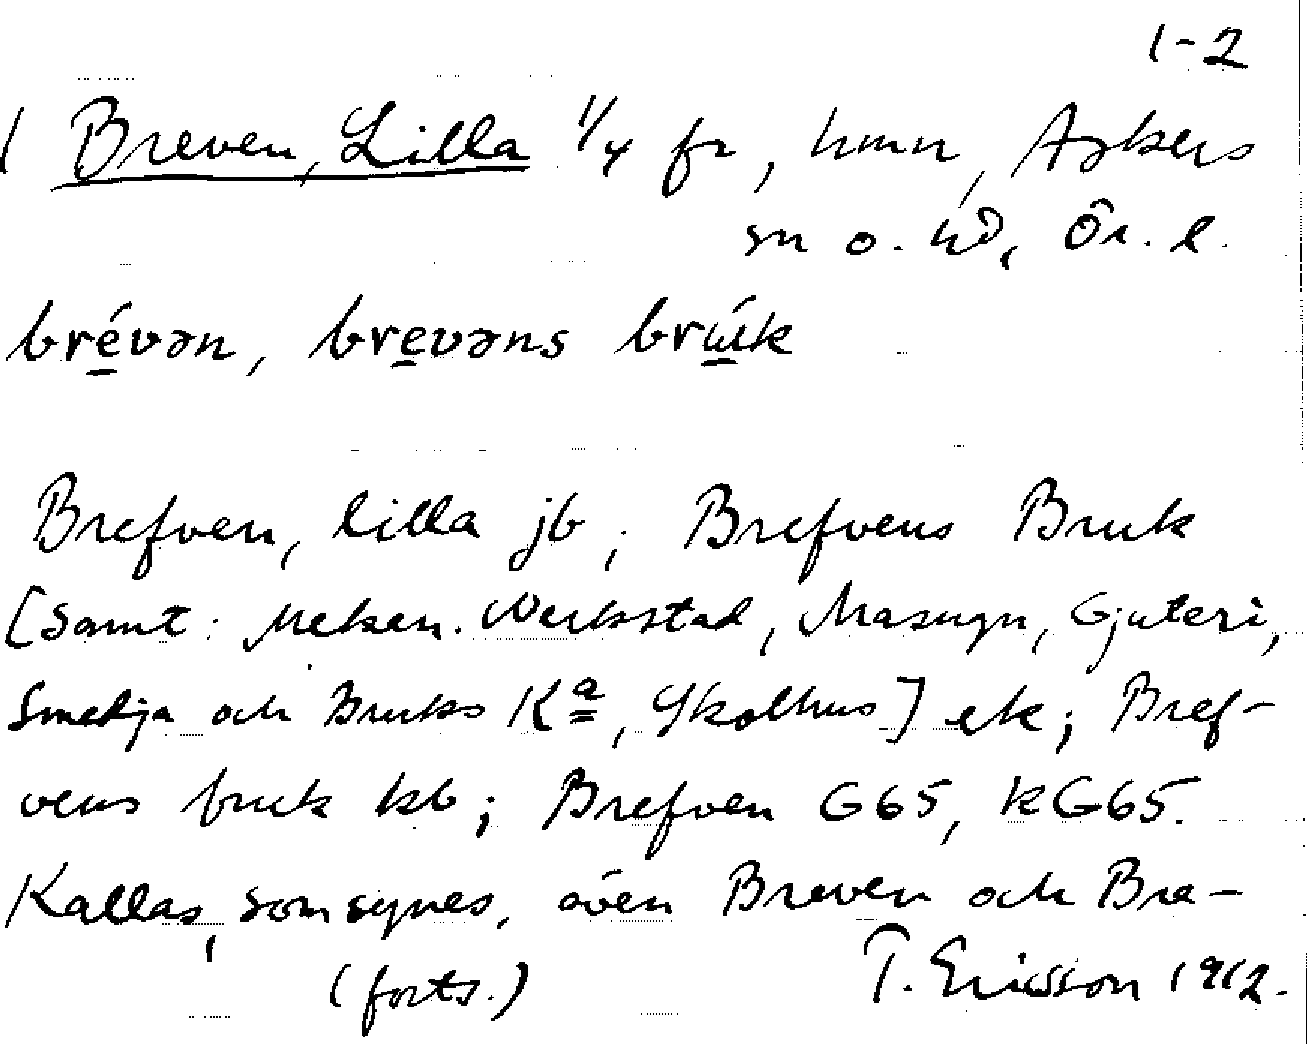 1-2
1 Breven, Lilla 1/4 fr, hmn, Askers
sn o. hd, Ör. l.
brévən, brevəns brúk
Brefven, lilla jb; Brefvens Bruk
[samt: Mekan. Werkstad, Masugn, Gjuteri,
Smedja och Bruks Kª, Skolhus] ek; Bref-
vens bruk kb; Brefven G65, kG65.
Kallas, som synes, även Breven och Bre-
(forts.) T. Ericsson 1912.